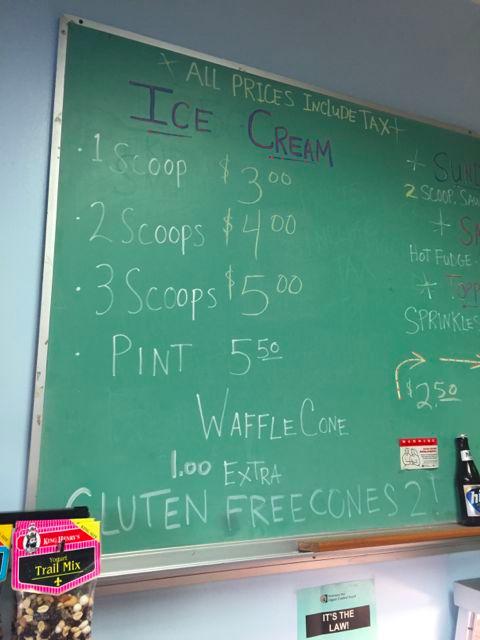 ALL PRICES INCLUDE TAX
ICE CREAM
· 1 SCOOP $3.00
· 2 SCOOPS $4.00
· 3 SCOOPS $5.00
· PINT 5.50
WAFFLE CONE
1.00 EXTRA
GLUTEN FREE CONES 2
2 SCOOP.
HOT FUDGE
SPRINKLES
$2.50
WARNING
KING HENRY'S
Yogurt
Trail Mix
IT'S THE
LAW!